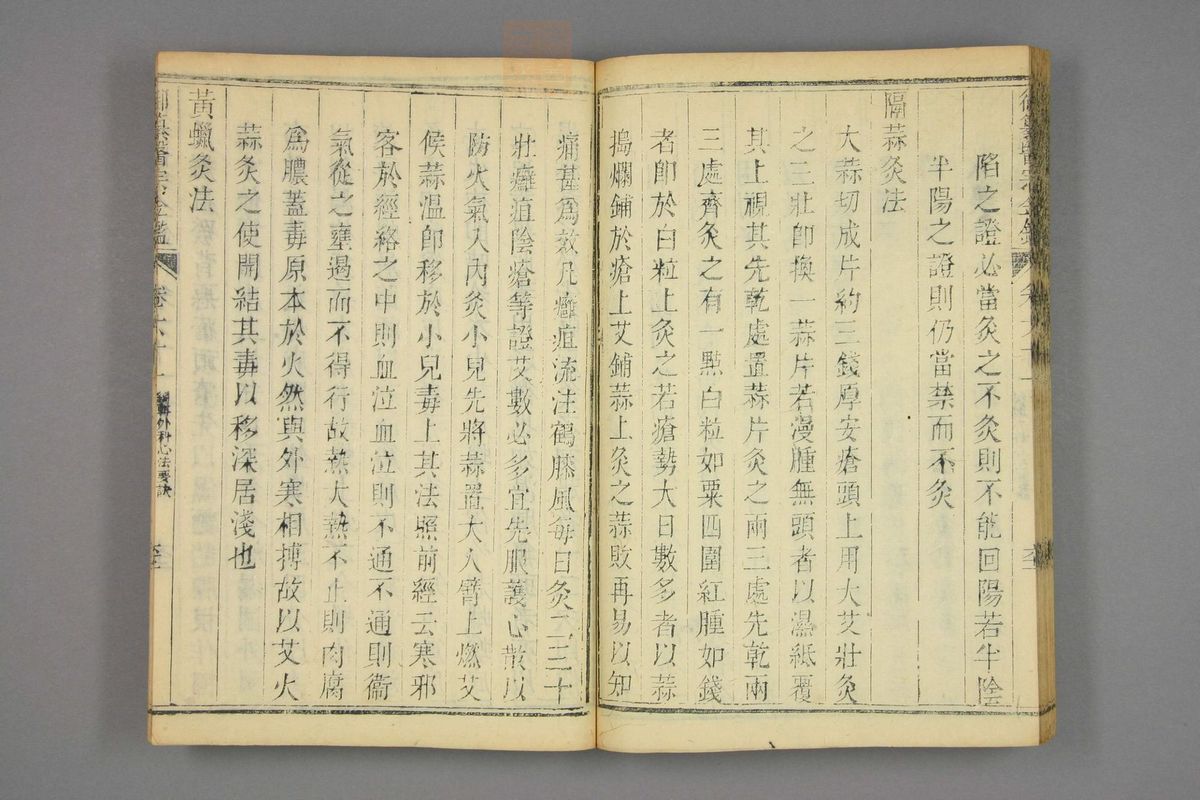 陷之證必當灸之不灸則不能回陽若半陰
半陽之證則仍當禁而不灸
隔蒜灸法
大蒜切成片約三錢厚安瘡頭上用大艾壯灸
之三壯卽換一蒜片若漫腫無頭者以濕紙覆
其上視其先乾處置蒜片灸之兩三處先乾兩
三處齊灸之有一點白粒如粟四圍紅腫如錢
者卽於白粒上灸之若瘡勢大日數多者以蒜
搗爛鋪於瘡上艾鋪蒜上灸之蒜敗再易以知
痛甚爲效凡癰疽流注鶴膝風每日灸二三十
壯癰疽陰瘡等證艾數必多宜先服護心散以
防火氣入內灸小兒先將蒜置大人臂上燃艾
候蒜溫卽移於小兒毒上其法照前經云寒邪
客於經絡之中則血泣血泣則不通不通則衞
氣從之壅遏而不得行故熱大熱不止則肉腐
爲膿蓋毒原本於火然與外寒相搏故以艾火
蒜灸之使開結其毒以移深居淺也
黃蠟灸法
御纂醫宗金鑑
卷六十一
編輯外科心法要訣